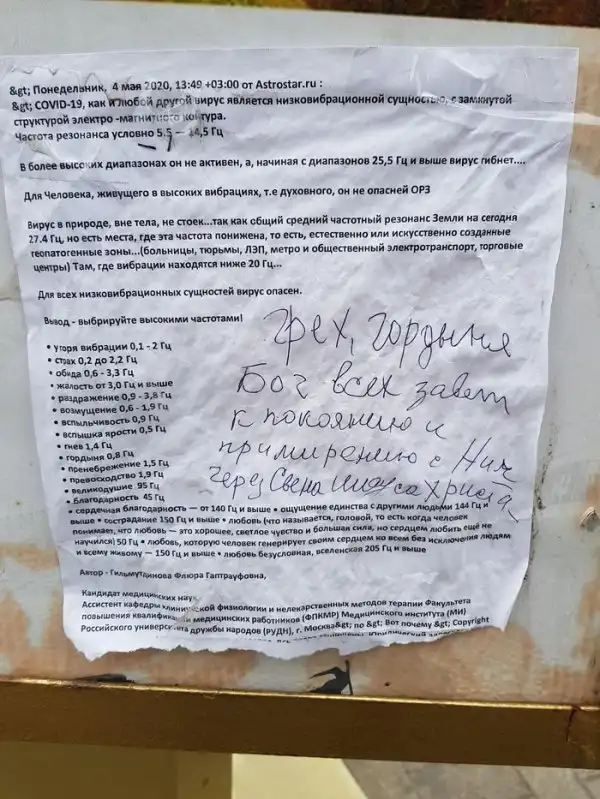 &gt; Понедельник, 4 мая 2020, 13:49 +03:00 от Astrostar.ru :
&gt; COVID-19, как и любой другой вирус является низковибрационной сущностью, с замкнутой
структурой электро -магнитного контура.
Частота резонанса условно 5.5 — 14,5 Гц
В более высоких диапазонах он не активен, а, начиная с диапазонов 25,5 Гц и выше вирус гибнет....
Для Человека, живущего в высоких вибрациях, т.е духовного, он не опасней ОРЗ
Вирус в природе, вне тела, не стоек...так как общий средний частотный резонанс Земли на сегодня
27.4 Гц, но есть места, где эта частота понижена, то есть, естественно или искусственно созданные
геопатогенные зоны...(больницы, тюрьмы, ЛЭП, метро и общественный электротранспорт, торговые
центры) Там, где вибрации находятся ниже 20 Гц...
Для всех низковибрационных сущностей вирус опасен.
Вывод - выбрируйте высокими частотами!
• угоря вибрации 0,1 - 2 Гц
• страх 0,2 до 2,2 Гц
• обида 0,6 - 3,3 Гц
• жалость от 3,0 Гц и выше
• раздражение 0,9 - 3,8 Гц
• возмущение 0,6 - 1,9 Гц
• вспыльчивость 0,9 Гц
• вспышка ярости 0,5 Гц
• гнев 1,4 Гц
• гордыня 0,8 Гц
• пренебрежение 1,5 Гц
• превосходство 1,9 Гц
• великодушие 95 Гц
• благодарность 45 Гц
• сердечная благодарность — от 140 Гц и выше • ощущение единства с другими людьми 144 Гц и
выше • сострадание 150 Гц и выше • любовь (что называется, головой, то есть когда человек
понимает, что любовь — это хорошее, светлое чувство и большая сила, но сердцем любить ещё не
научился) 50 Гц • любовь, которую человек генерирует своим сердцем ко всем без исключения людям
и всему живому — 150 Гц и выше • любовь безусловная, вселенская 205 Гц и выше
Автор - Гильмутдинова Флюра Гаптрауфовна,
Кандидат медицинских наук
Ассистент кафедры клинической физиологии и нелекарственных методов терапии Факультета
повышения квалификации медицинских работников (ФПКМР) Медицинского института (МИ)
Российского университета дружбы народов (РУДН), г. Москва&gt; по &gt; Вот почему &gt; Copyright
грех, гордыня
Бог всех завет
к покоянию и
примирению с Ним
через Сына Иисуса Христа